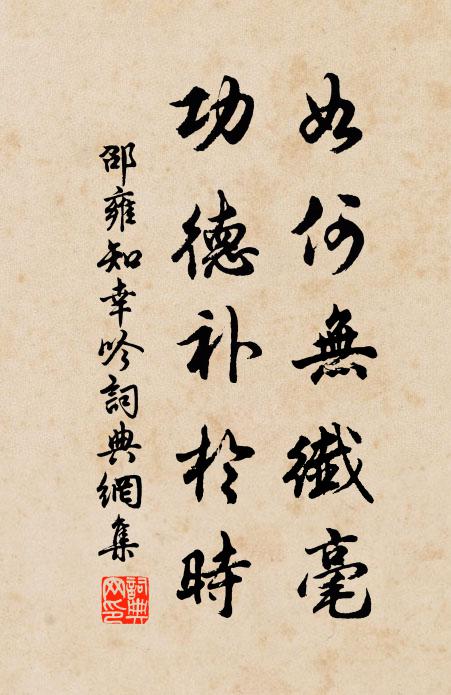 如何無纖毫
功德补於時
邵雍知幸吟詞典網集
詞典网印